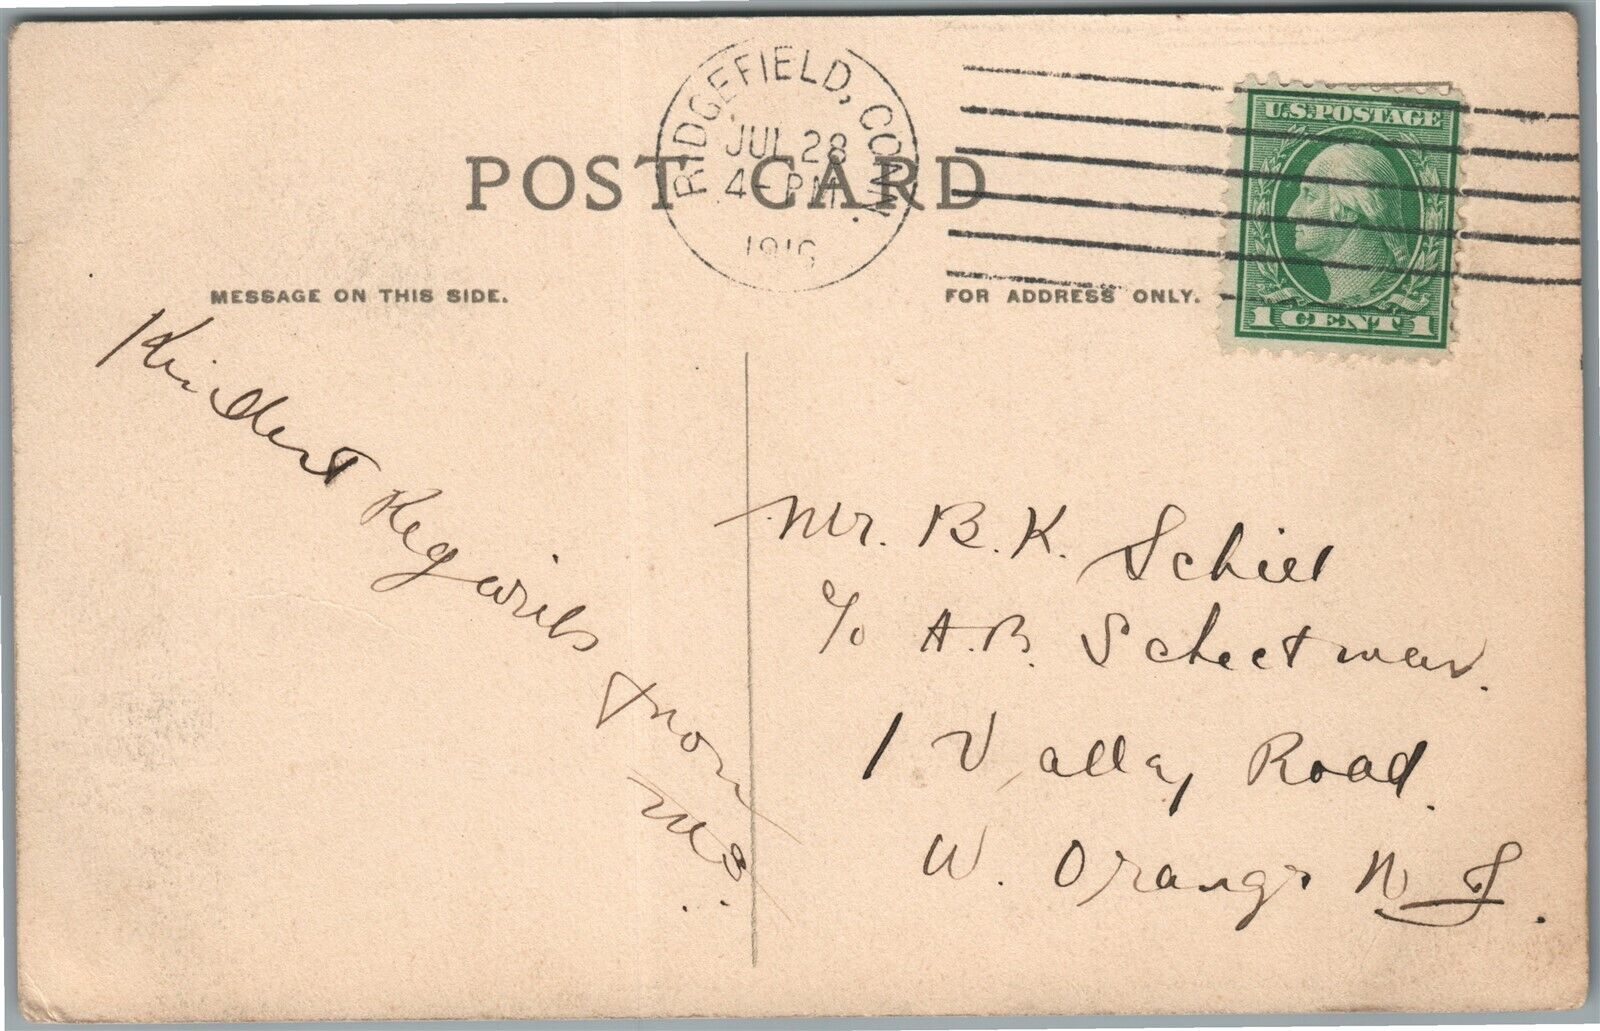 RIDGEFIELD, CONN.
JUL 28
4-PM
1916
POST CARD
U.S. POSTAGE
1 CENT 1
MESSAGE ON THIS SIDE.
FOR ADDRESS ONLY.
Kindest Regards from
Mr. B. K. Schiel
c/o A. B. Schectman.
1 Valley Road.
W. Orange N J.